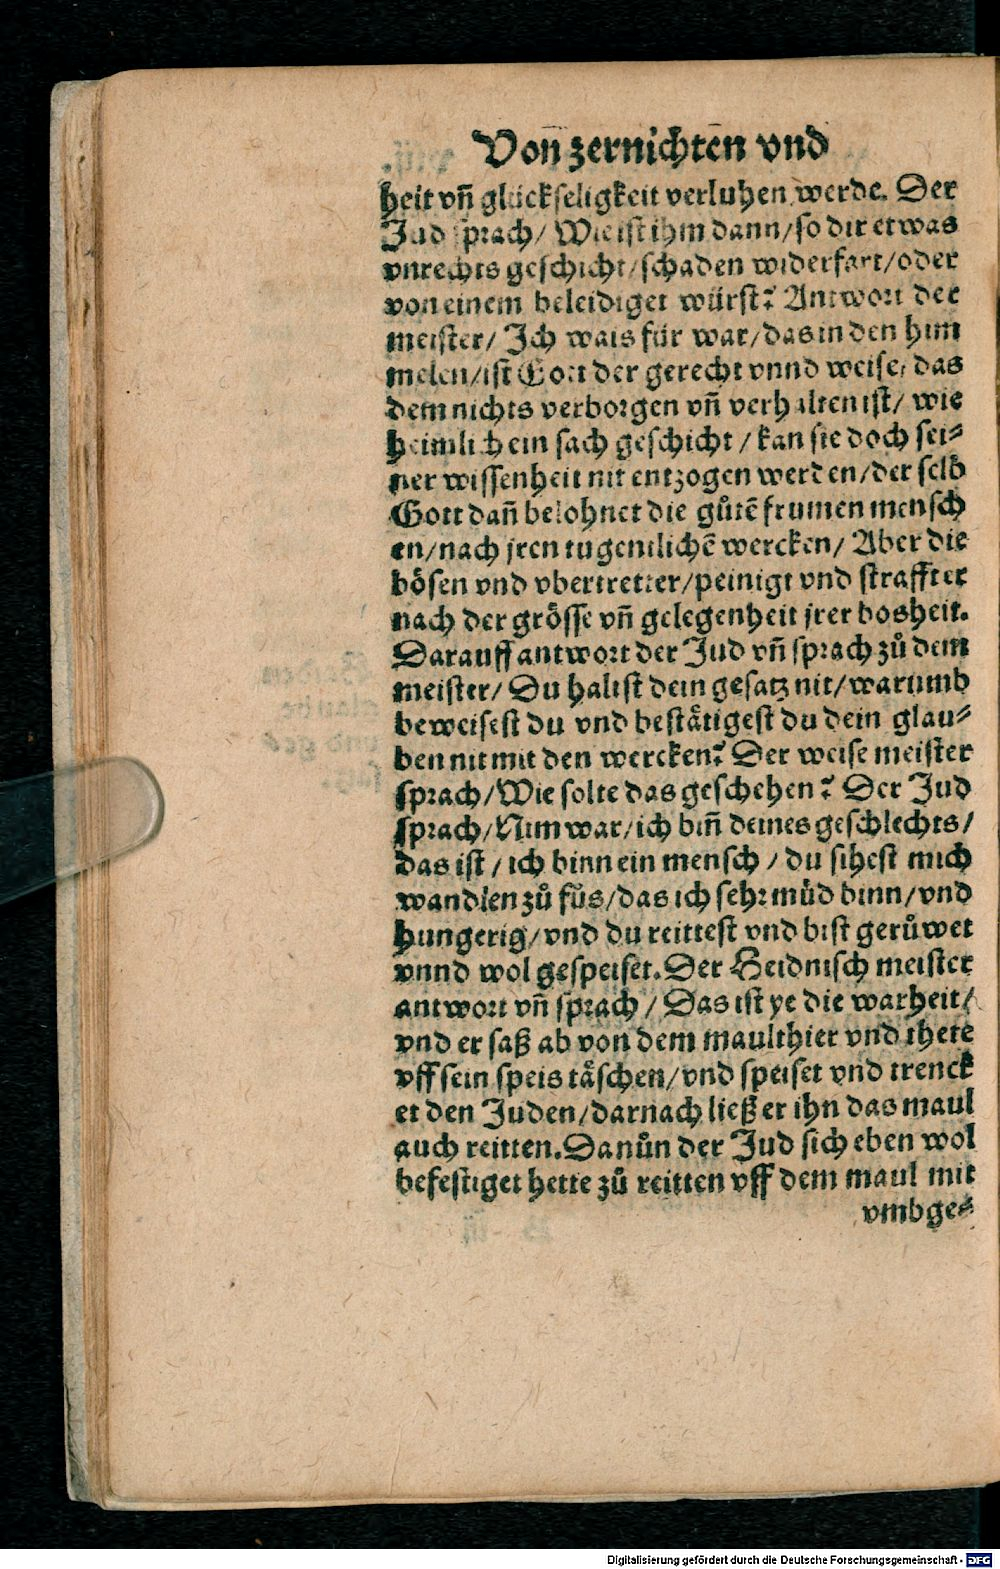 Von̄ zernichtēn vnd
heit vn̄ glückseligkeit verluhen werde. Der
Jud sprach/ Wie ist ihm dann/so dir etwas
vnrechts geschicht/schaden widerfart/oder
von einem beleidiget würst? Antwort der
meister/ Ich wais für war/das in den him
melen/ist Gott der gerecht vnnd weise, das
dem nichts verborgen vn̄ verhalten ist/ wie
heimlich ein sach geschicht / kan sie doch sei⸗
ner wissenheit nit entzogen werden/der selb
Gott dan̄ belohnet die gůtē frumen mensch
en/nach jren tugentlichē wercken/ Aber die
bösen vnd vbertretter/peinigt vnd straffter
nach der grösse vn̄ gelegenheit jrer bosheit.
Darauff antwort der Jud vn̄ sprach zů dem
meister/ Du haltst dein gesatz nit/warumb
beweisest du vnd bestätigest du dein glau⸗
ben nit mit den wercken? Der weise meister
sprach/Wie solte das geschehen? Der Jud
sprach/Nim war/ich bin̄ deines geschlechts/
das ist / ich binn ein mensch / du sihest mich
wandlen zů fůs/das ich sehr můd binn/vnd
hungerig/vnd du reittest vnd bist gerůwet
vnnd wol gespeiset. Der Heidnisch meister
antwort vn̄ sprach / Das ist ye die warheit/
vnd er saß ab von dem maulthier vnd thete
vff sein speis täschen/vnd speiset vnd trenck
et den Juden/darnach ließ er ihn das maul
auch reitten. Da nůn der Jud sich eben wol
befestiget hette zů reitten vff dem maul mit
vmbge⸗
Digitalisierung gefördert durch die Deutsche Forschungsgemeinschaft - DFG